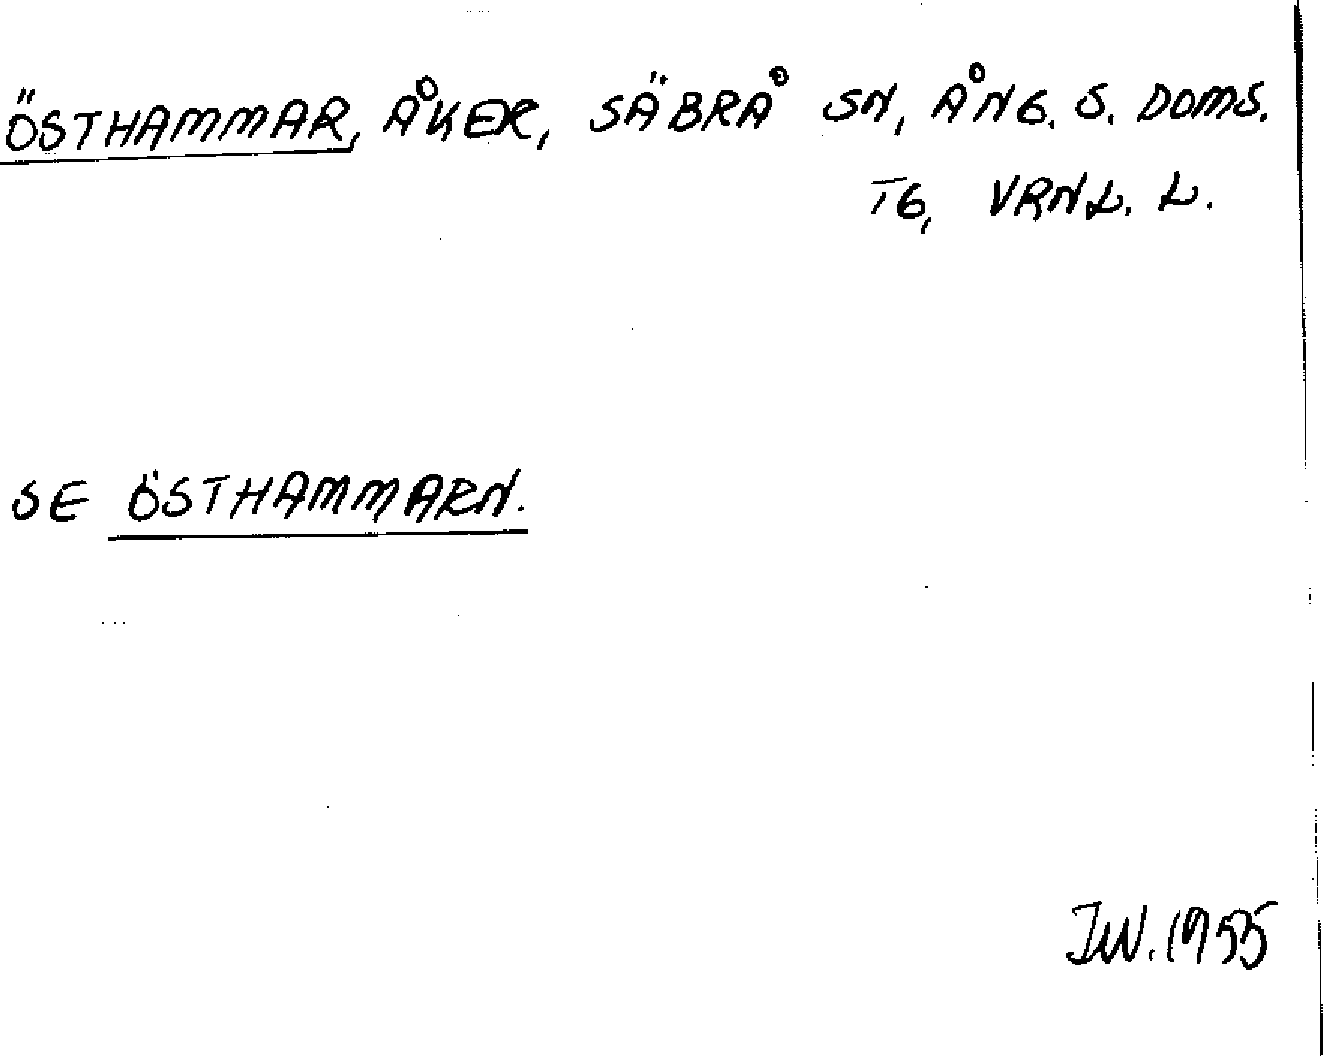 ÖSTHAMMAR, ÅKER, SÄBRÅ SN, ÅNG. S. DOMS.
TG, VRNL. L.
SE ÖSTHAMMARN.
IW. 1955